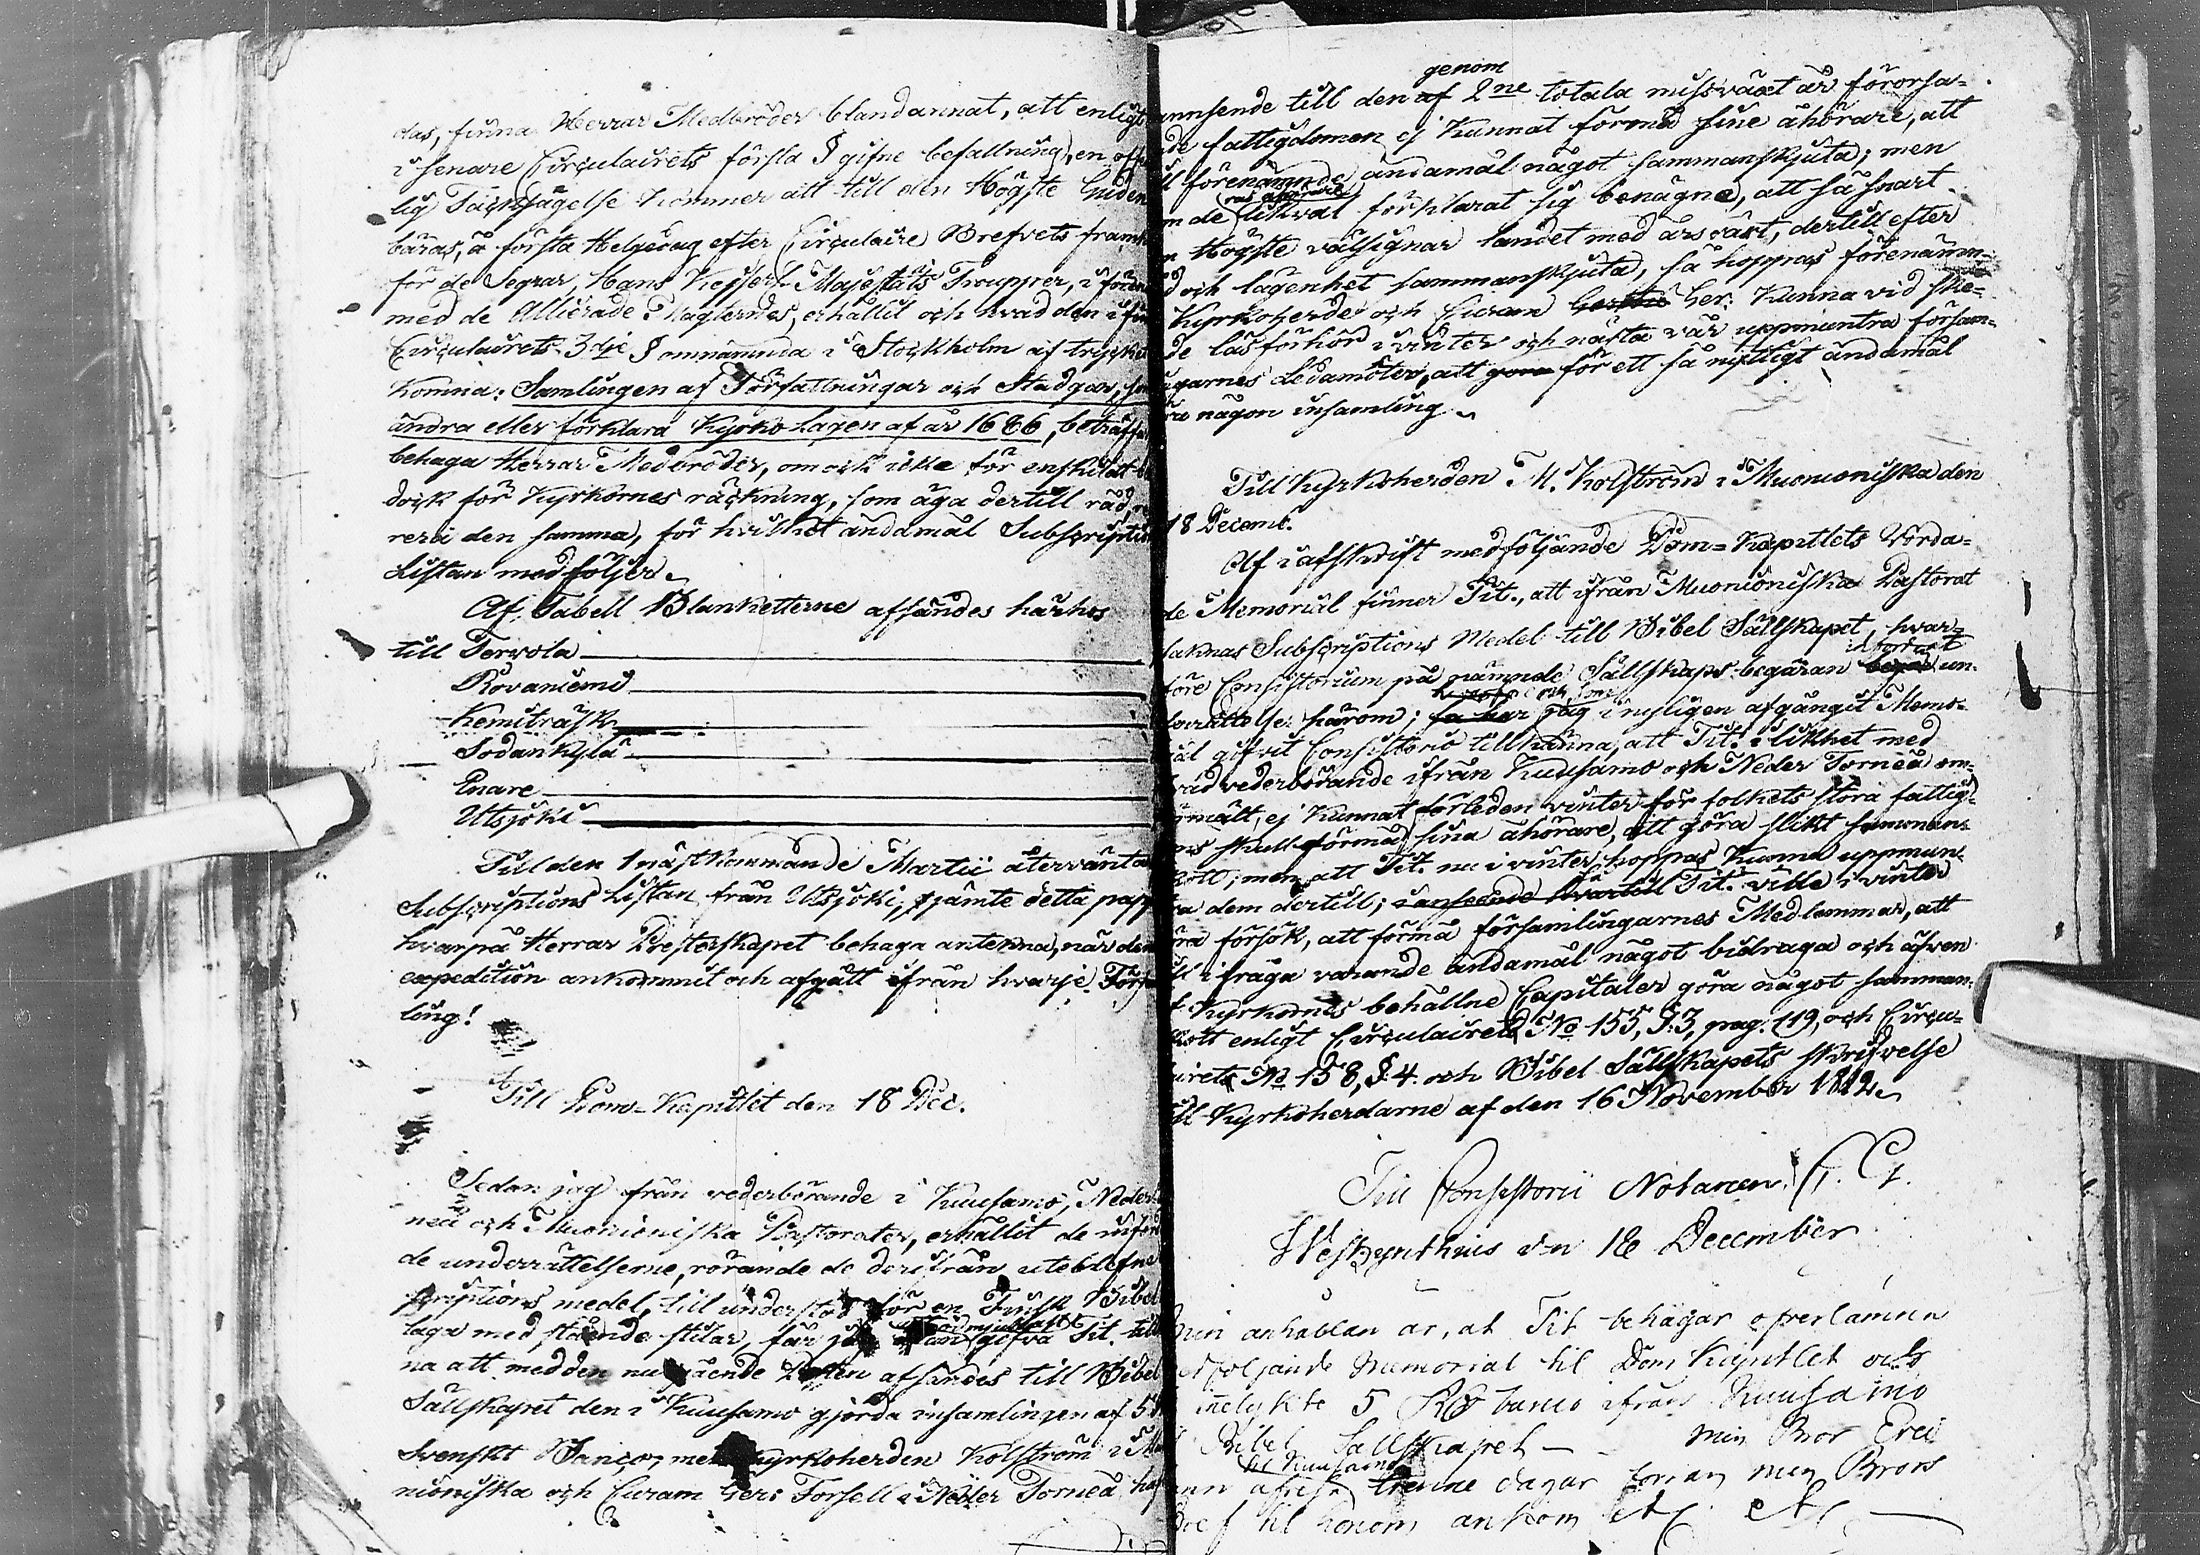 das, finna Herrar Medbröder blandannat, att enligt
i senare Circulairets första § gifne befallning, en offe
lig Tacksägelse kommer att till den Högste Guden
bäras, å första Helgedag efter Circulaire Brefvets fram
för de Segrar, Hans Kejserl. Majestäts Troupper, i fören
med de Allierade Magternes, erhållit och hvad den i
Circulairets 3dje § omnämnda i Stockholm af trycket
komna: Samlingen af Författningar och Stadgar, som
ändra eller förklara Kyrko Lagen af år 1686, beträffa
behaga Herrar Medbröder, om och icke för enskildt
dock för Kyrkornes räckning, som äga dertill råd,
rera den samma, för hvilket ändamål Subscriptions
Listan medföljer.
Af Tabell Blanketterne afsändes härhos
till Tervola
Rovaniemi
Kemiträsk
Sodankylä
Enare
Utsjoki
Till den 1 nästkommande Martii återväntas
Subscriptions Listan från Utsjoki, jämte detta papp
hvarpå Herrar Presterskapet behaga anteckna, när den
expedition ankommit och afgått ifrån hvarje Förs
ling!
Till Dom-Kapitlet den 18 Dec.
Sedan jag från vederbörande i Kuusamo, Neder
neå och Muonioniska Pastorater, erhållit de infor
de underrättelserne, rörande de derifrån uteblefne
scriptions medel, till understöd för en Finsk Bibel
laga med stående stilar, får jag ödmjukast gifva Tit. till
na att med den nu gående Posten afsändes till Bibel
Sällskapet den i Kuusamo gjorda insamlingen af 5
Svenskt Banco, men Kyrkoherden Kolström i
nioniska och Curam Ger: Forsell i Neder Torneå haf
genom
annsende till den af 2ne totala missväxt år förorsa-
de fattigdomen ej kunnat förmå sine åhörare, att
ll förenämnde ändamål något sammanskjuta; men
m de likväl förklarat sig benägne, att så snart
n Högste välsignar landet med årsväxt, dertill efter
d och lägenhet sammanskjuta, så hoppas förenämn-
Kyrkoherde och Curam Ger: kunna vid ske-
de läsförhör i vinter och nästa vår uppmuntra försam-
garnes Ledamöter, att göra för ett så nyttigt ändamål
ra någon insamling.
Till Kyrkoherden M. Kolström i Muonioniska den
18 Decemb.
Af i afskrift medföljande Dom-Kapitlets Vörda-
de Memorial finner Tit., att ifrån Muonioniska Pastorat
saknas Subscriptions Medel till Bibel Sällskapet, hvar-
infordrat
före Consistorium på nämnde Sällskaps begäran begär un-
derrättelse härom; så har jag i nyligen afgångit Memo-
ial gifvit Consistorio tillkänna, att Tit. i likhet med
vederbörande ifrån Kuusamo och Neder Torneå om-
mält, ej kunnat förleden vinter för folkets stora fattig-
ms skull förmå sina åhörare, att göra slikt samman-
skott; men att Tit. nu i vinter hoppas kunna uppmun-
ra dem dertill; i anseende hvartill Tit. ville i vinter
öra försök, att förmå församlingarnes Medlemmar, att
ill ifråga varande ändamål något bidraga och äfven
Kyrkornes behållne Capitaler göra något samman-
skott enligt Circulairets No 155, §. 3, pag. 119, och Circu-
airets No 158, §. 4. och Bibel Sällskapets skrifvelse
ill Kyrkoherdarne af den 16 November 1812.
Till Consistorii Notarien C. G.
Weskynthius den 18 December
Min anhållan är, at Tit behagar öfverlämna
edföljande Memorial til Dom Kapitlet och
inelykte 5 Rd banco ifrån Kuusamo
Bibel Sällskapet — min Bror Eric
til Kuusamo
ann afreste trenne dagar förrän min Brors
bref til honom ankom etc etc